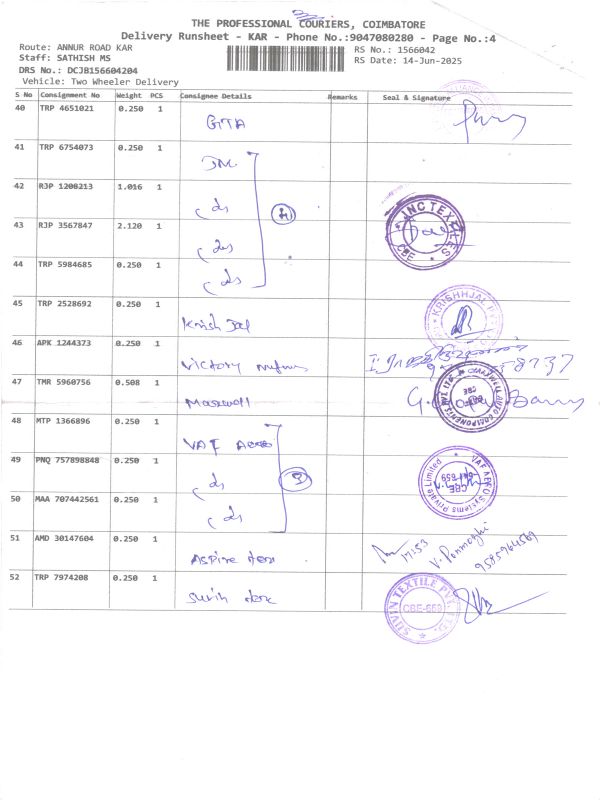 THE PROFESSIONAL COURIERS, COIMBATORE
Delivery Runsheet - KAR - Phone No.:9047080280 - Page No.:4
Route: ANNUR ROAD KAR
RS No.: 1566042
Staff: SATHISH MS
RS Date: 14-Jun-2025
DRS No.: DCJB156604204
Vehicle: Two Wheeler Delivery
S No Consignment No Weight PCS Consignee Details Remarks Seal & Signature
40 TRP 4651021 0.250 1
GTA
41 TRP 6754073 0.250 1
JNC
42 RJP 1208213 1.016 1
INC TEXTILES
CBE
43 RJP 3567847 2.120 1
44 TRP 5984685 0.250 1
45 TRP 2528692 0.250 1
Krish Jal
KRISHHJAL
46 APK 1244373 0.250 1
Victory
47 TMR 5960756 0.508 1
Maxwell
MAXWELL AUTO COMPONENTS PVT LTD
CBE
48 MTP 1366896 0.250 1
VAF Aero
49 PNQ 757898848 0.250 1
VAF AERO Systems Private Limited
CBE
50 MAA 707442561 0.250 1
51 AMD 30147604 0.250 1
Aspire tex
17:53
V. Ponmozhi
9585964569
52 TRP 7974208 0.250 1
Suvin tex
SUVIN TEXTILE PVT. LTD.
CBE-653